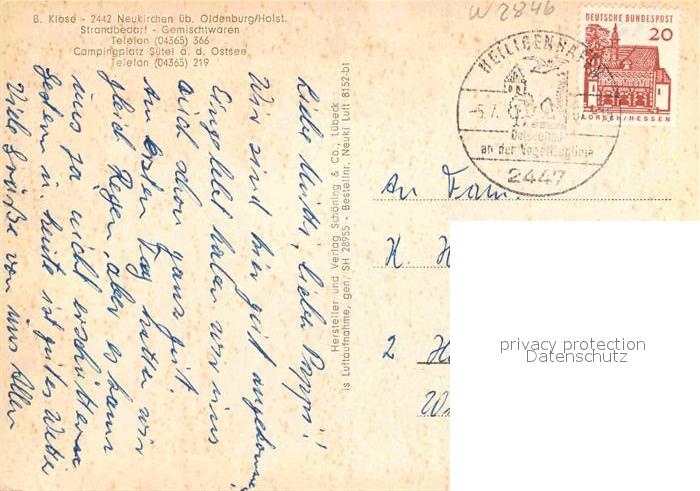 B. Klose - 2442 Neukirchen üb. Oldenburg/Holst.
Strandbedarf - Gemischtwaren
Telefon (04365) 366
Campingplatz Sütel a. d. Ostsee
Telefon (04365) 219
W 2846
DEUTSCHE BUNDESPOST
20
LORSCH/HESSEN
HEILIGENHAFEN
-5.7.
Ostseebad
an der Vogelfluglinie
2447
Liebe Mutti, lieber Pappi!
Wir sind hier gut angekommen
Eingelebt haben wir uns
auch schon ganz gut.
Am ersten Tag hatten wir
gleich Regen, aber es kann
uns ja nicht erschüttern
Gestern u. heute ist gutes Wetter
Viele Grüße von uns Allen
Hersteller und Verlag Schöning & Co., Lübeck
is Luftaufnahme, gen. SH 28955 - Bestellnr. Neuki Luft 8152-bt
An Fam.
K. H
2 H
privacy protection
Datenschutz